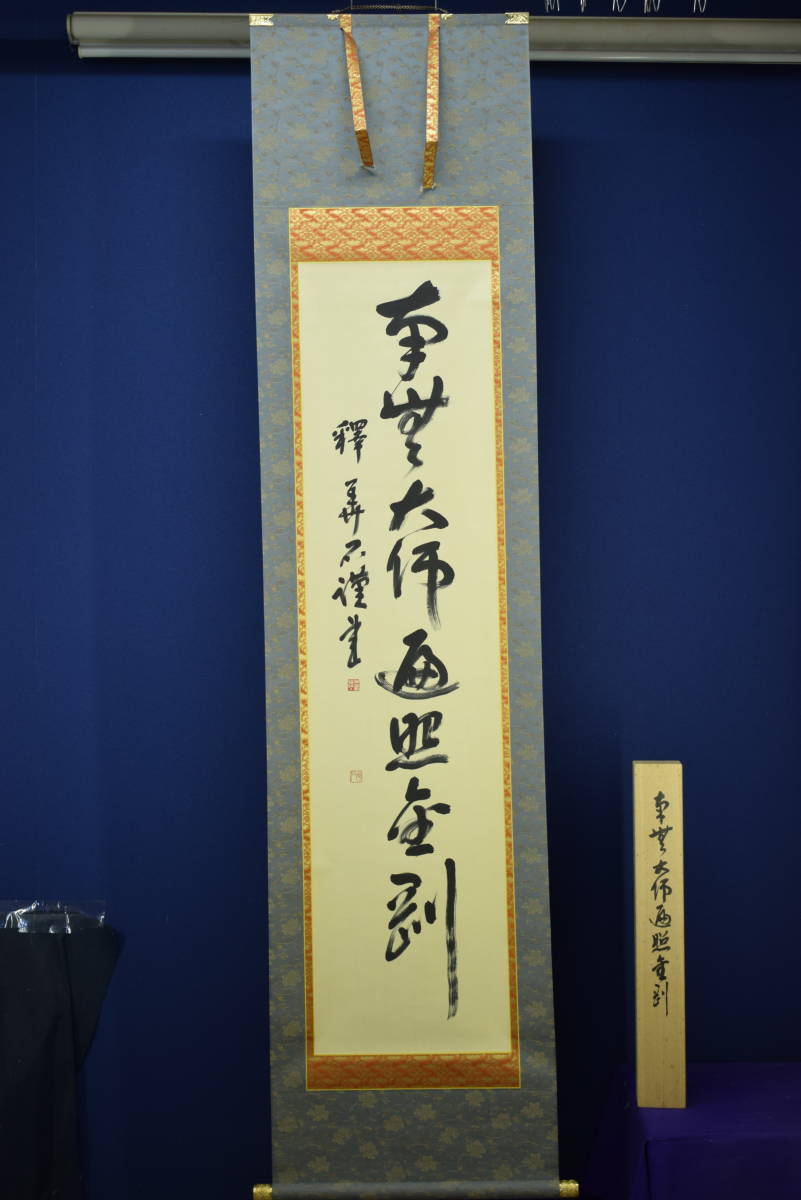 南無大師遍照金剛
釋 華石謹書
南無大師遍照金剛